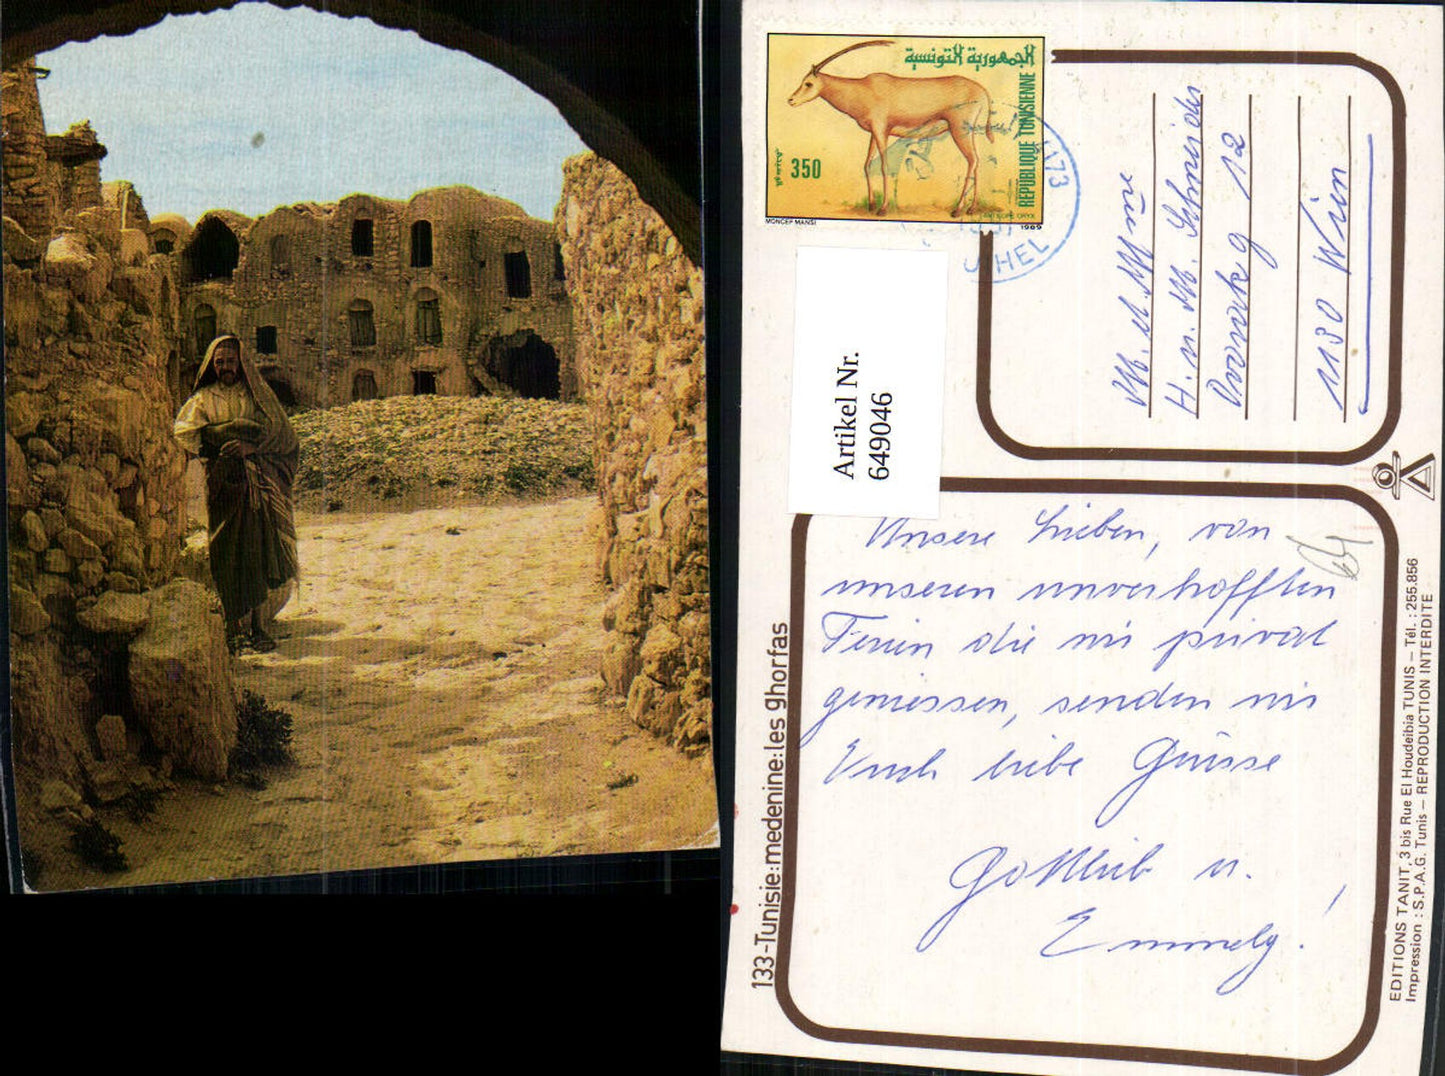 الجمهورية التونسية
REPUBLIQUE TUNISIENNE
350
ANTILOPE ORYX
MONCEF MANSI
1989
HEL
Artikel Nr.
649046
H. u. M. Schneider
12
1190 Wien
Unsere Lieben, von
unseren unverhofften
Ferien die wir privat
geniessen, senden wir
Euch liebe Grüsse
Gottlieb u.
Emmely!
133-Tunisie:medenine:les ghorfas
EDITIONS TANIT, 3 bis Rue El Houdeibia TUNIS – Tél. : 255.856
Impression : S.P.A.G. Tunis – REPRODUCTION INTERDITE